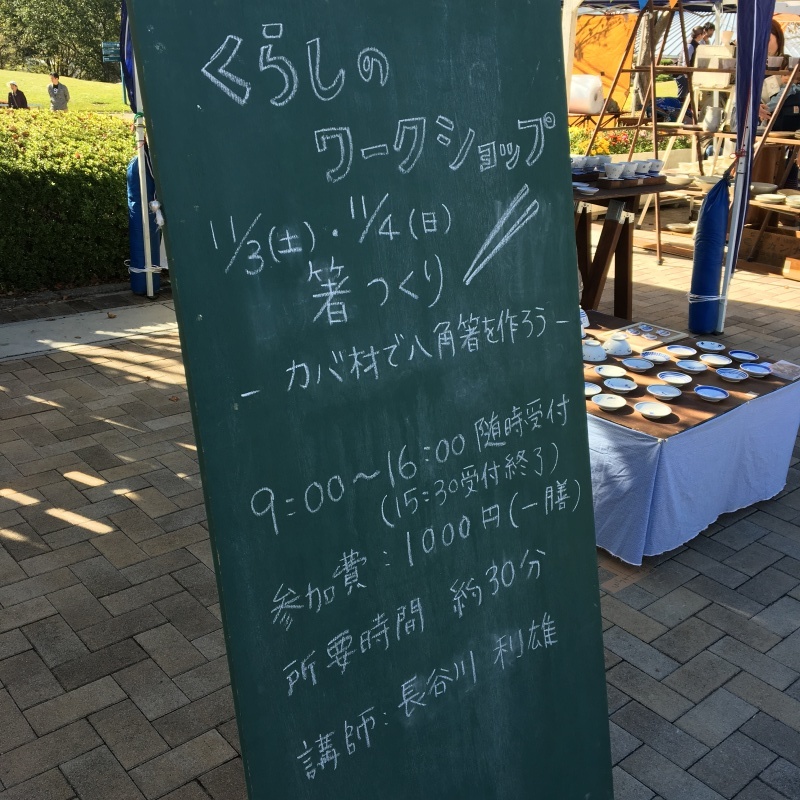 くらしの
ワークショップ
11/3(土)・11/4(日)
箸つくり
－カバ材で八角箸を作ろう－
9:00～16:00 随時受付
(15:30受付終了)
参加費:1000円(一膳)
所要時間 約30分
講師:長谷川 利雄